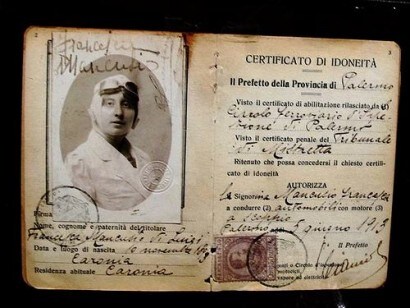 2
Francesca
Mancusio
Firma
Nome, cognome e paternità del titolare
Francesca Mancusio di Luigi
Data e luogo di nascita novembre
Caronia
Residenza abituale Caronia
3
CERTIFICATO DI IDONEITÀ
Il Prefetto della Provincia di Palermo
Visto il certificato di abilitazione rilasciato da (1)
Circolo Ferroviario d'Ispe
zione di Palermo
Visto il certificato penale del Tribunale
di Mistretta
Ritenuto che possa concedersi il chiesto certifi-
cato di idoneità
AUTORIZZA
la Signorina Mancusio Francesca
a condurre (2) automobili con motore (3)
a scoppio
Palermo giugno 1913
Il Prefetto